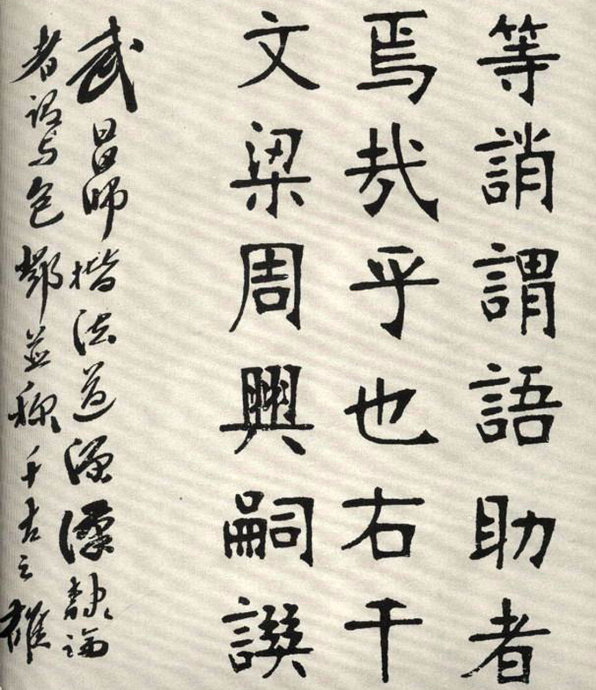 等誚謂語助者
焉哉乎也右千
文梁周興嗣譔
武昌師楷法道源漢隸論
者謂与包鄧並称千古之雄